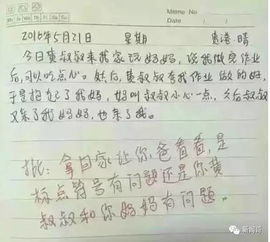 Memo No.
Date
2016年5月21日 星期 黄浦 晴
今日黄叔叔来我家玩妈妈，说我做完作业
后，可以吃点心。然后，黄叔叔看我作业做的好，
于是抱起了我妈，妈叫叔叔小心一点，之后叔叔
又亲了我妈妈，也亲了我。
批：拿回家让你爸看看，是
标点符号有问题还是你黄
叔叔和你妈妈有问题。